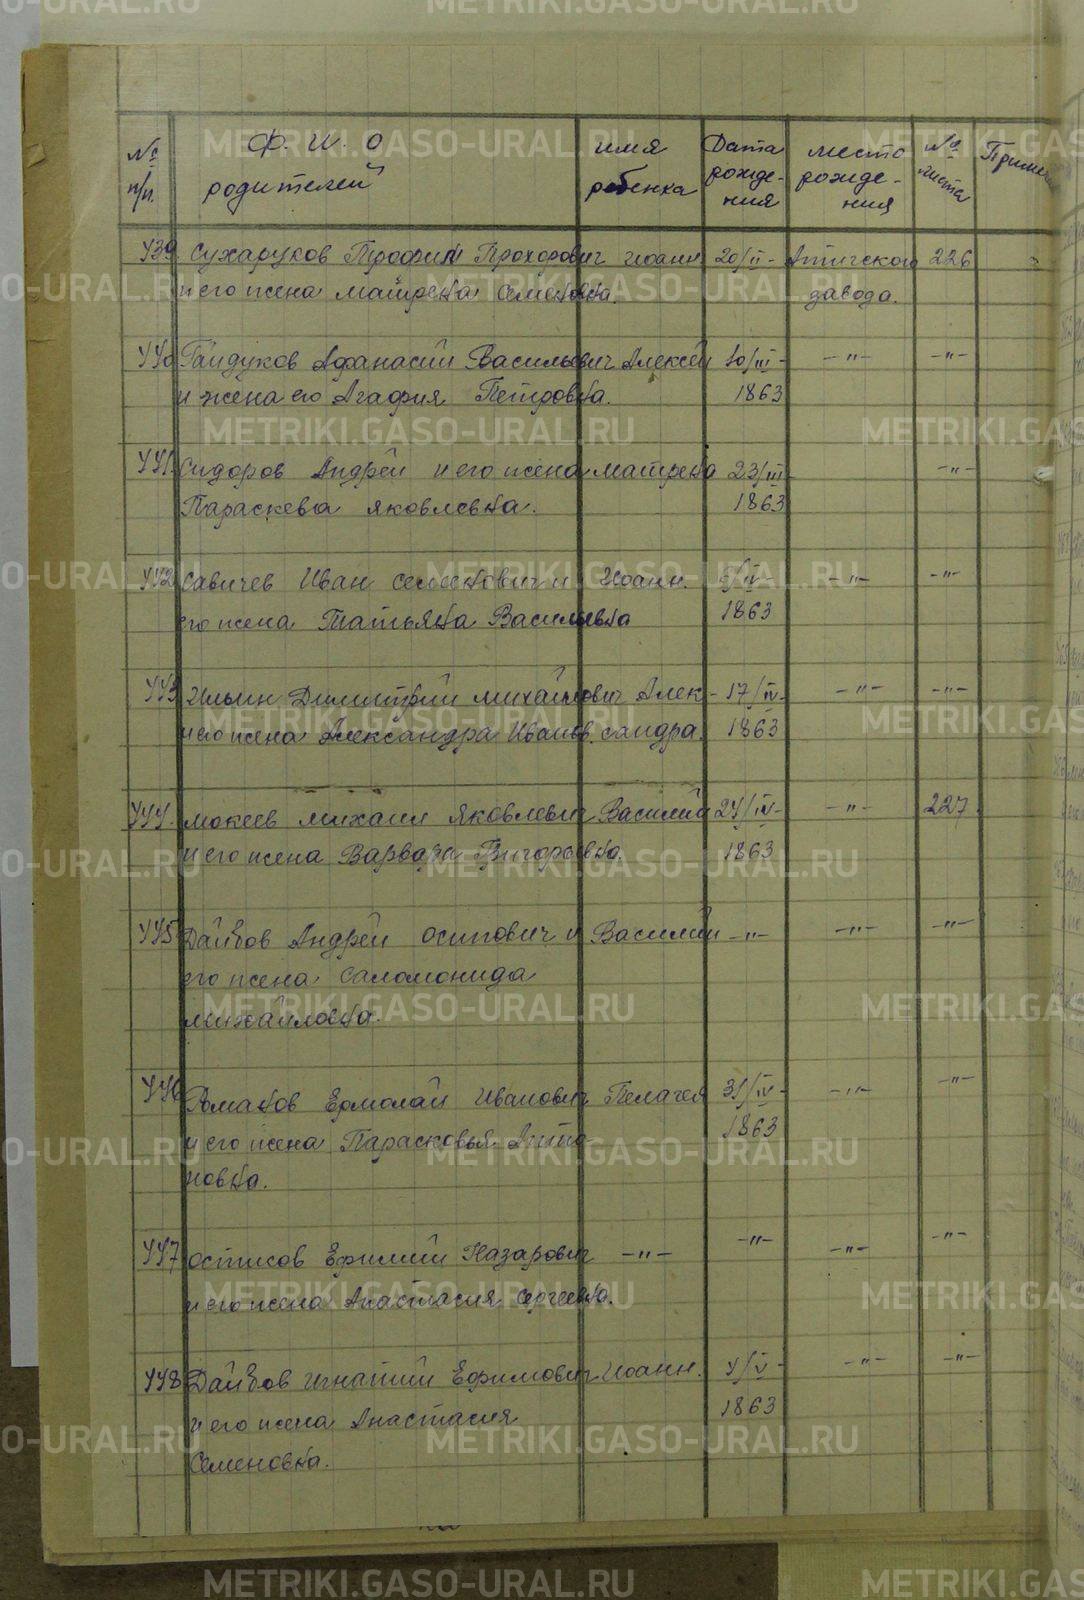 METRIKI.GASO-URAL.RU
№ п/п. Ф. И. О родителей имя ребенка Дата рожде-ния место рожде-ния № листа Примеч
439 Сухаруков Трофим Прохорович Иоанн 20/II- Атигского 226
и его жена Матрена Семеновна. завода.
440 Гайдуков Афанасий Васильевич Алексей 10/III- -"- -"-
и жена его Агафия Петровна. 1863
441. Сидоров Андрей и его жена Матрена 23/III- -"-
Параскева Яковлевна. 1863
442 Савичев Иван Семенович и Иоанн. /IV- -"- -"-
его жена Татьяна Васильевна 1863
443 Ильин Димитрий Михайлович Алек- 17/IV- -"- -"-
и его жена Александра Иванов. сандра. 1863
444. Мокеев Михаил Яковлевич Василий 24/IV- -"- 227
и его жена Варвара Григорьевна. 1863
445 Дайбов Андрей Осипович и Василий -"- -"- -"-
его жена Саломонида
Михайловна.
446 Романов Ермолай Иванович Пелагея 31/IV- -"- -"-
и его жена Парасковья Анти 1863
новна.
447 Ефимий Назарович -"- -"- -"- -"-
и его жена Анастасия Сергеевна.
448 Дайбов Игнатий Ефимович Иоанн. 4/V- -"- -"-
и его жена Анастасия 1863
Семеновна.